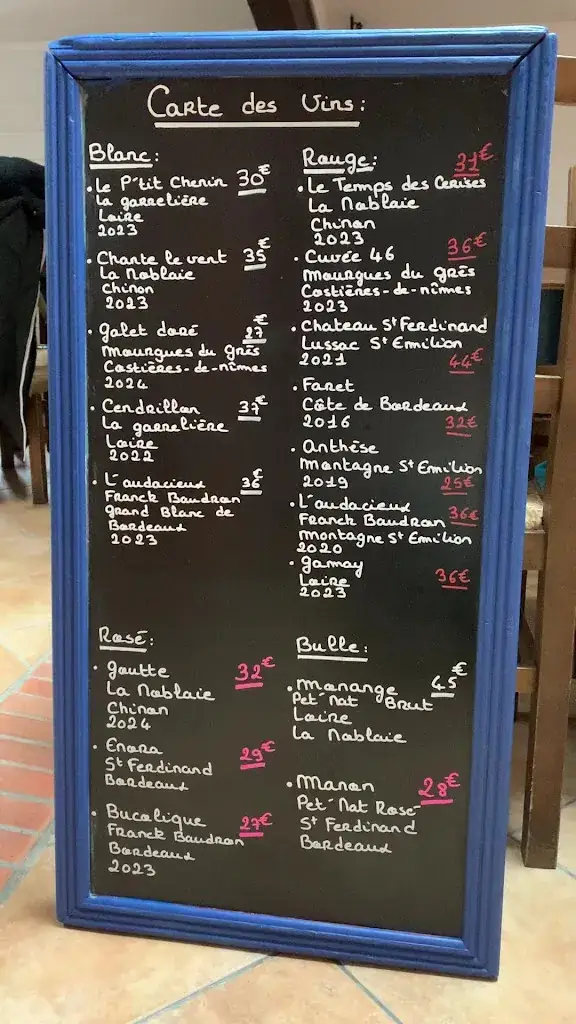 Carte des Vins:
Blanc:
• Le P'tit Chenin 30€
La garrelière
Loire
2023
• Chante le vent 35€
La Noblaie
Chinon
2023
• Galet doré 27€
Mourgues du grès
Costières-de-nîmes
2024
• Cendrillon 37€
La garrelière
Loire
2022
• L'audacieux 36€
Franck Baudron
Grand Blanc de
Bordeaux
2023
Rouge: 31€
• Le Temps des Cerises
La Noblaie
Chinon
2023
• Cuvée 46 36€
Mourgues du grès
Costières-de-nîmes
2023
• Chateau St Ferdinand
Lussac St Emilion
2021 44€
• Faret
Côte de Bordeaux
2016 32€
• Anthèse
Montagne St Emilion
2019 25€
• L'audacieux
Franck Baudron 36€
Montagne St Emilion
2020
• Gamay
Loire 36€
2023
Rosé:
• Goutte 32€
La Noblaie
Chinon
2024
• Enora 29€
St Ferdinand
Bordeaux
• Bucolique 27€
Franck Baudron
Bordeaux
2023
Bulle:
• Manange 45€
Pet' Nat Brut
Loire
La Noblaie
• Manon 28€
Pet' Nat Rosé
St Ferdinand
Bordeaux